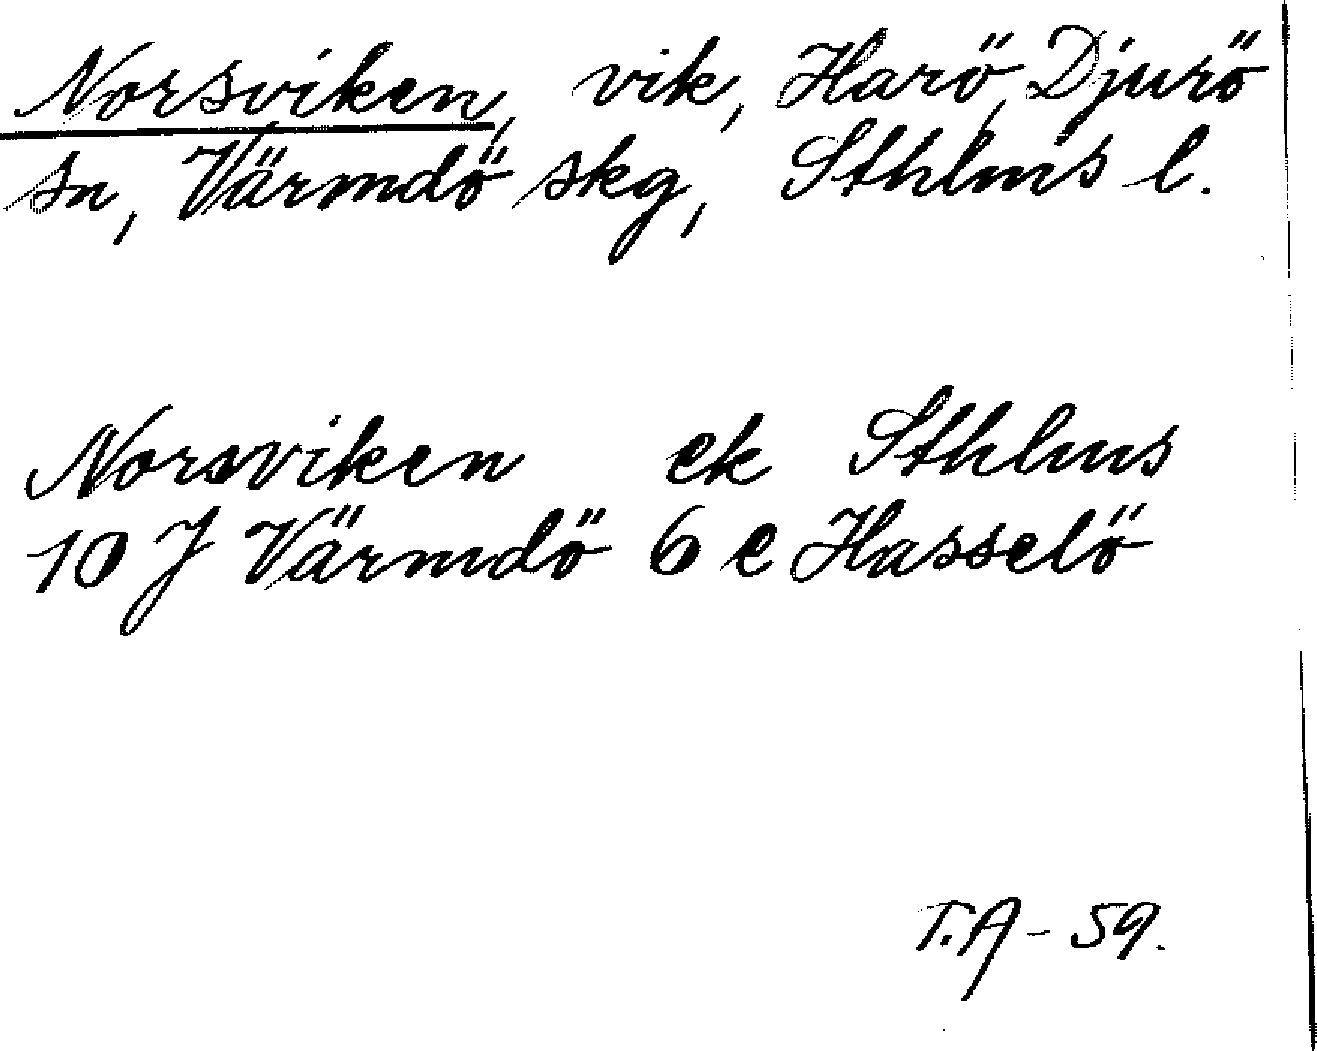 Norsviken, vik, Harö, Djurö
sn, Värmdö skg, Sthlms l.
Norsviken ek Sthlms
10 J Värmdö 6 e Hasselö
T.A - 59.